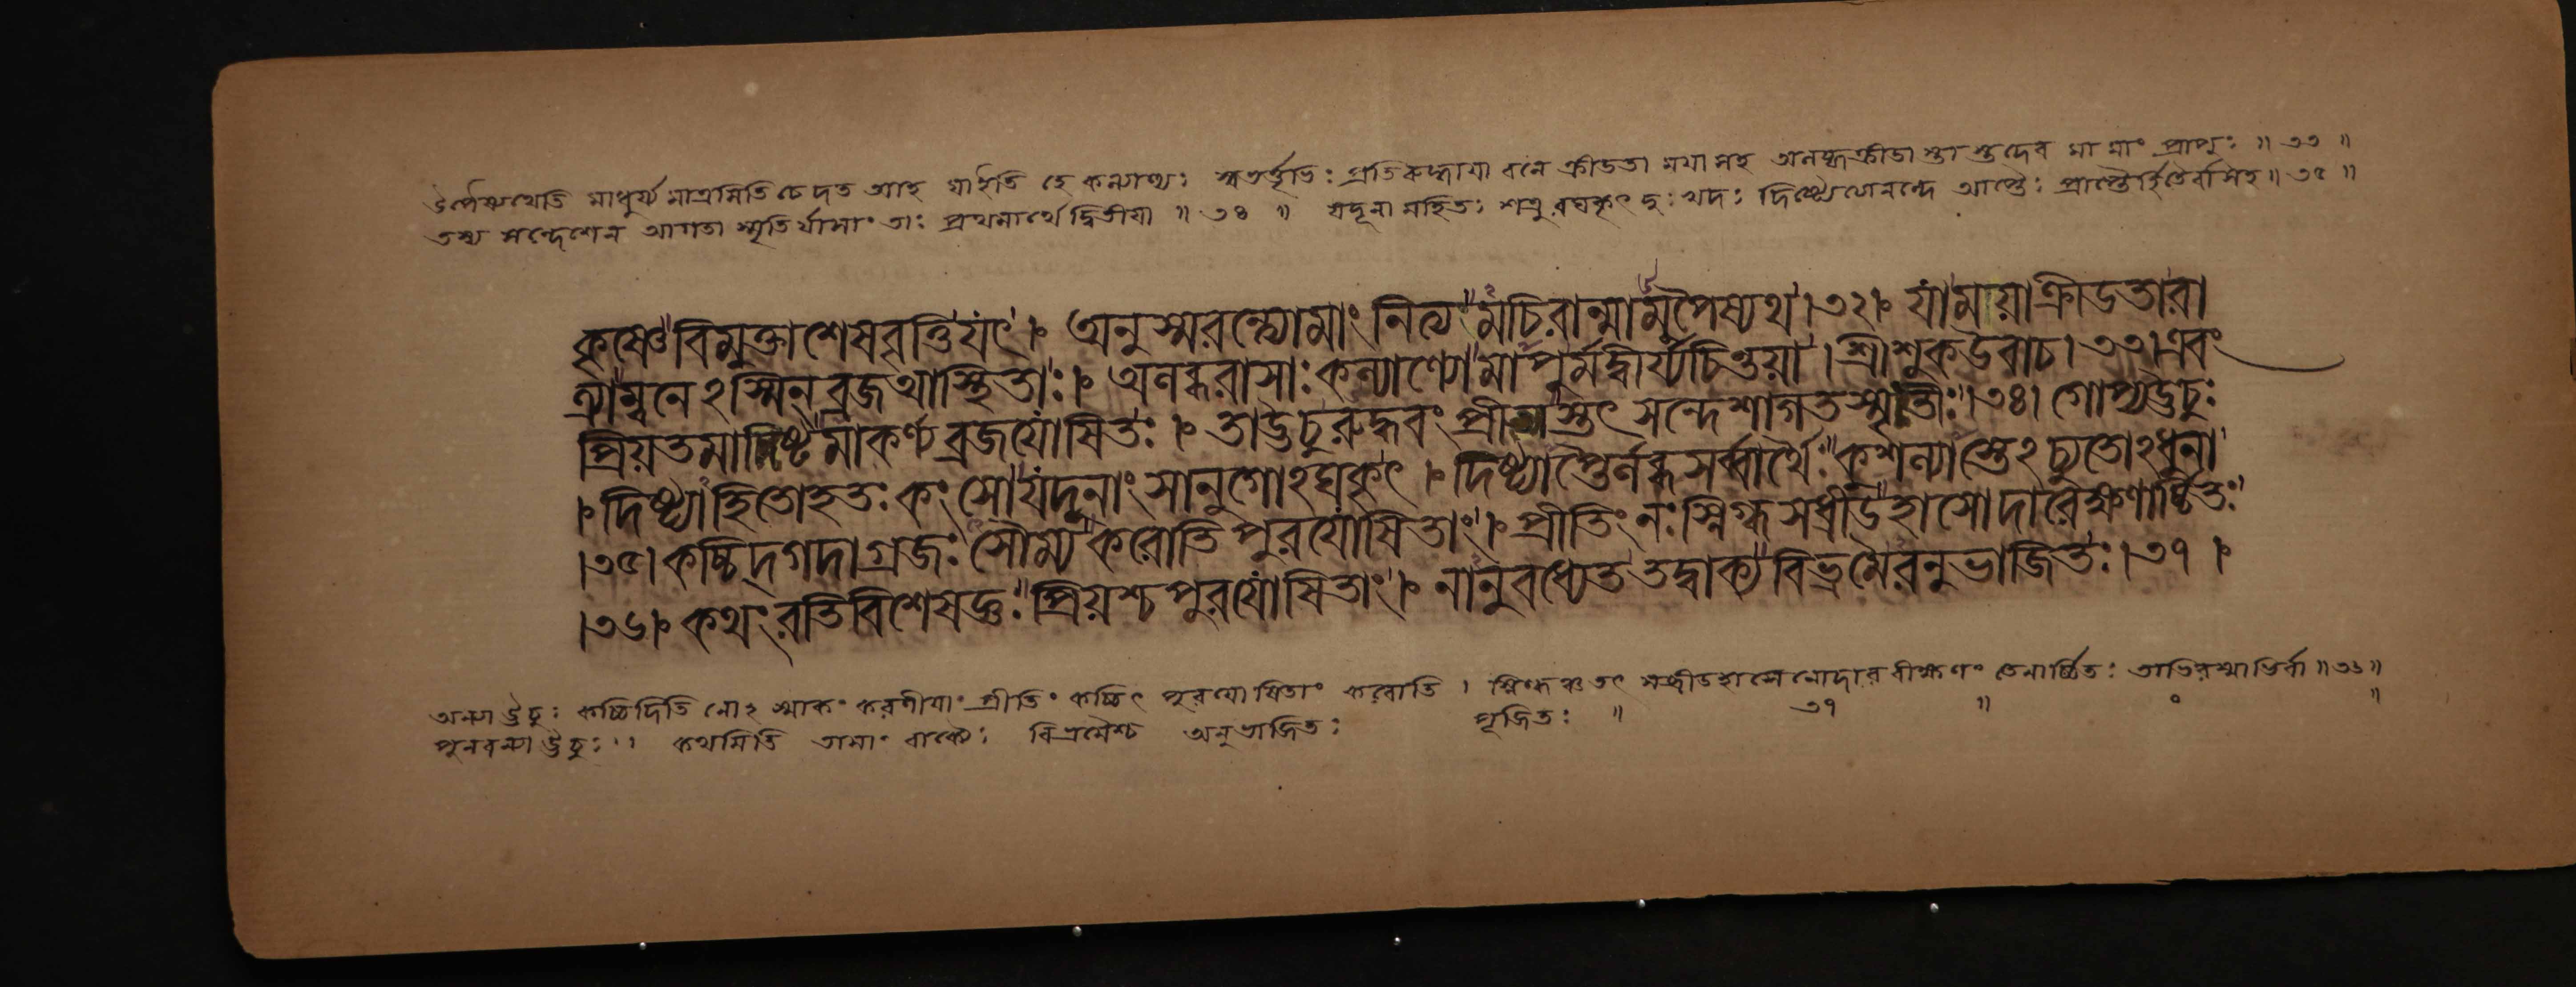 উপৈষ্যথেতি মাধুর্য্য মাত্রমিতি চেদত আহ যা ইতি হে কল্যাণ্যঃ স্বভর্তৃভিঃ প্রতিবদ্ধা যা বনে ক্রীডতা ময়া সহ অলব্ধক্রীডা স্তা স্তদৈব মা মাং প্রাপুঃ ॥ ৩৩ ॥
তস্য সন্দেশেন আগতা স্মৃতি র্যাসাং তাঃ প্রথমার্থে দ্বিতীয়া ॥ ৩৪ ॥ যদূনা মহিতঃ শত্রু রঘকৃৎ দুঃখদঃ আপ্তৈঃ প্রাপ্তৈ ॥ ৩৫ ॥
কৃষ্ণে বিমুক্তাশেষবৃত্তি যৎ । অনুস্মরন্ত্যো মাং নিত্য মচিরান্মামুপৈষ্যথ । ৩২ । যা ময়া ক্রীডতা রা
ত্র্যাম্বনে ঽস্মিন্ ব্রজ আস্থিতাঃ । অলব্ধরাসাঃ কল্যাণ্যো মাপু র্মদ্বীর্য্যচিন্তয়া । শ্রীশুক উবাচ । ৩৩ । এবং
প্রিয়তমাদিষ্ট মাকর্ণ্য ব্রজযোষিতঃ । তা ঊচু রুদ্ধবং প্রীতাস্তৎ সন্দেশাগতস্মৃতীঃ । ৩৪ । গোপ্য ঊচুঃ
। দিষ্ট্যাহিতো হতঃ কংসো যদূনাং সানুগোঽঘকৃৎ । দিষ্ট্যাপ্তৈ র্লব্ধসর্ব্বার্থৈঃ কুশল্যাস্তেঽচ্যুতোঽধুনা
। ৩৫ । কচ্চিদ্ গদাগ্রজঃ সৌম্য করোতি পুরযোষিতাং । প্রীতিং নঃ স্নিগ্ধসব্রীডহাসোদারেক্ষণার্চ্চিতঃ
। ৩৬ । কথং রতিবিশেষজ্ঞঃ প্রিয়শ্চ পুরযোষিতাং । নানুবধ্যেত তদ্বাক্য বিভ্রমৈ রনুভাজিতঃ । ৩৭ ।
অন্যা ঊচুঃ কচ্চিদিতি নোঽ স্মাকং করণীয়াং প্রীতিং কচ্চিৎ পুরযোষিতাং করোতি । স্নিগ্ধঞ্চ তৎ সব্রীডহাসেনোদার বীক্ষণং তেনার্চ্চিতঃ তাভিরস্মাভির্বা ॥ ৩৬ ॥
পুনরন্যা ঊচুঃ ॥ কথমিতি তাসাং বাক্যৈঃ বিভ্রমৈশ্চ অনুভাজিতঃ পূজিতঃ ॥ ৩৭ ॥ ॰ ॥